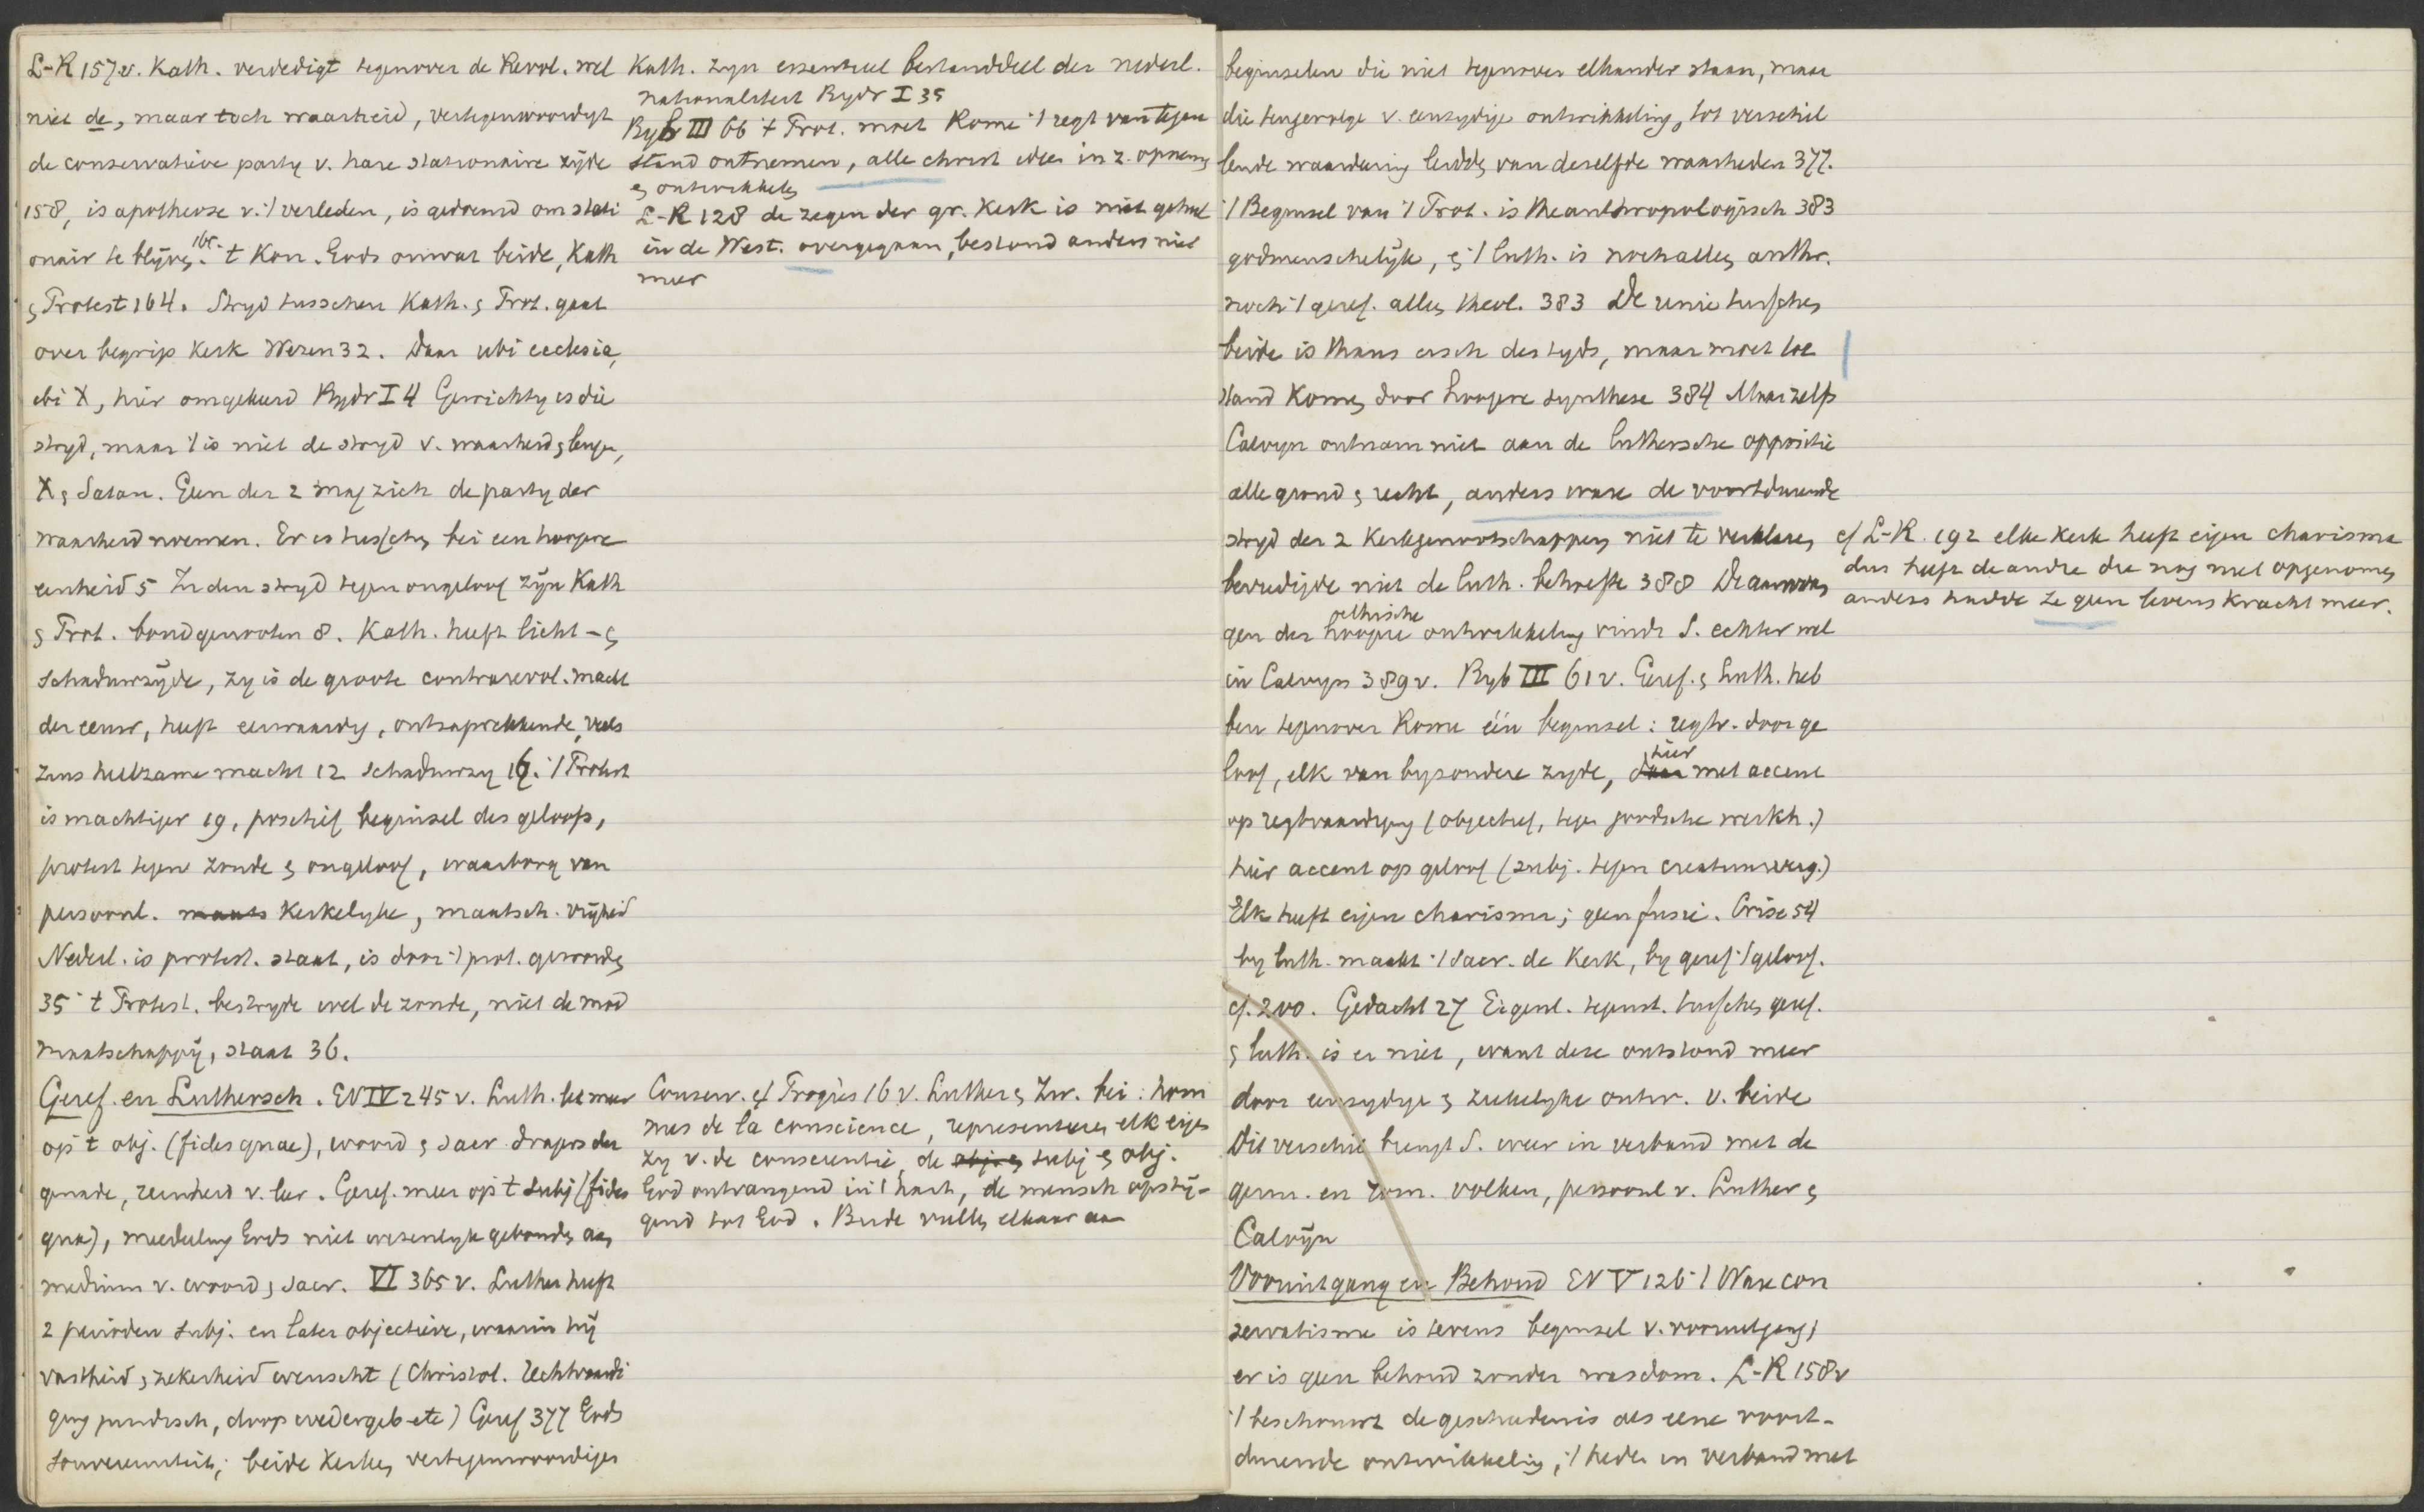 L-R 157v. Kath. verdedigt tegenover de Revol. wel
niet de, maar toch waarheid, vertegenwoordigt
de conservatieve party v. hare stationaire zijde
158, is apotheose v. 't verleden, is gedoemd om stati
onair te blijven. 't Kon. Gods omvat beide, Kath
& Protest 164. Stryd tusschen Kath. & Prot. gaat
over begrip Kerk Wezen 32. Daar ubi ecclesia,
ibi X, hier omgekeerd Bydr I 4 Gewichtig is die
stryd, maar 't is niet de stryd v. waarheid & leugen,
X & Satan. Geen der 2 mag zich de party der
waarheid noemen. Er is tusschen bei een hoogere
eenheid 5 In den stryd tegen ongeloof zijn Kath
& Prot. bondgenooten 8. Kath. heeft licht- &
schaduwzijde, zy is de groote contrarevol. macht
der eeuw, heeft eerwaardig, ontzagwekkende, veels
zins heilzame macht 12 Schaduwzy 16. 't Protest
is machtiger 19, positief beginsel des geloofs,
protest tegen zonde & ongeloof, waarborg van
persoonl. kerkelyke, maatsch. vrijheid
Nederl. is protest. staat, is door 't prot. geworden
35 't Protest. bestryde wel de zonde, niet de mod
maatschappij, staat 36.
Geref. en Luthersch. EV IV 245 v. Luth. let meer
op 't obj. (fides quae), woord & sacr dragers der
genade, reinheid v. leer. Geref. meer op 't subj (fides
qua), meedeling Gods niet wezenlyk gebonden aan
medium v. woord & sacr. VI 365 v. Luther heeft
2 perioden subj. en later objectieve, waarin hij
vastheid & zekerheid wenscht (Christol. Rechtvaardi
ging juridisch, doop wedergeb etc) Geref 377 Gods
souvereinteit; beide Kerken vertegenwoordigen
Kath. zyn essentieel bestanddeel der nederl.
nationaliteit Bydr I 35
Bydr III 66 't Prot. moet Rome 't regt van tegen
stand ontnemen, alle christ idees in z. opnemen
& ontwikkelen
L-R 128 de zegen der gr. Kerk is niet geheel
in de West. overgegaan, bestond anders niet
meer
Conserv. & Progrès 16 v. Luther & Zw. bei: hom
mes de la conscience, representeeren elk eigen
zy v. de conscientie, de subj & obj.
God ontvangend in 't hart, de mensch opstij-
gend tot God. Beide vullen elkaar aan
beginselen die niet tegenover elkander staan, maar
die tengevolge v. eenzydige ontwikkeling, tot verschil
lende waardering leidde van deselfde waarheden 377.
't Beginsel van 't Prot. is theanthropologisch 383
godmenschelijk, & 't Luth. is noch alleen anthr.
noch 't geref. alleen theol. 383 De unie tusschen
beide is thans eisch des tyds, maar moet tot
stand komen door hoogere synthese 384 Maar zelfs
Calvyn ontnam niet aan de luthersche oppositie
alle grond & recht, anders ware de voortdurende
stryd der 2 Kerkgenootschappen niet te verklaren
bevredigde niet de luth. behoefte 388 De aanvan
gen der hoogere ethische ontwikkeling vindt S. echter wel
in Calvyn 389 v. Byb III 61 v. Geref. & Luth. heb
ben tegenover Rome één beginsel: regtv. door ge
loof, elk van byzondere zyde, hier met accent
op regtvaardiging (objectief, tegen joodsche werkh.)
hier accent op geloof (subj. tegen creatuurverg.)
Elk heeft eigen charisma; geen fusie. Crise 54
by luth. maakt 't sacr. de Kerk, by geref 't geloof.
cf. 200. Gedacht 27 Eigenl. tegenst. tusschen geref.
& luth. is er niet, want deze ontstond meer
door eenzydige & ziekelyke ontw. v. beide
Dit verschil brengt S. weer in verband met de
germ. en rom. volken, persoonl v. Luther &
Calvijn
Vooruitgang en Behoud EV V 126 't Ware con
servatisme is tevens beginsel v. vooruitgang;
er is geen behoud zonder wasdom. L-R 158v
't beschouwt de geschiedenis als eene voort-
durende ontwikkeling, 't heden in verband met
cf L-R. 192 elke kerk heeft eigen charisma
dus heeft de andre die nog niet opgenomen
anders hadde ze geen levenskracht meer.